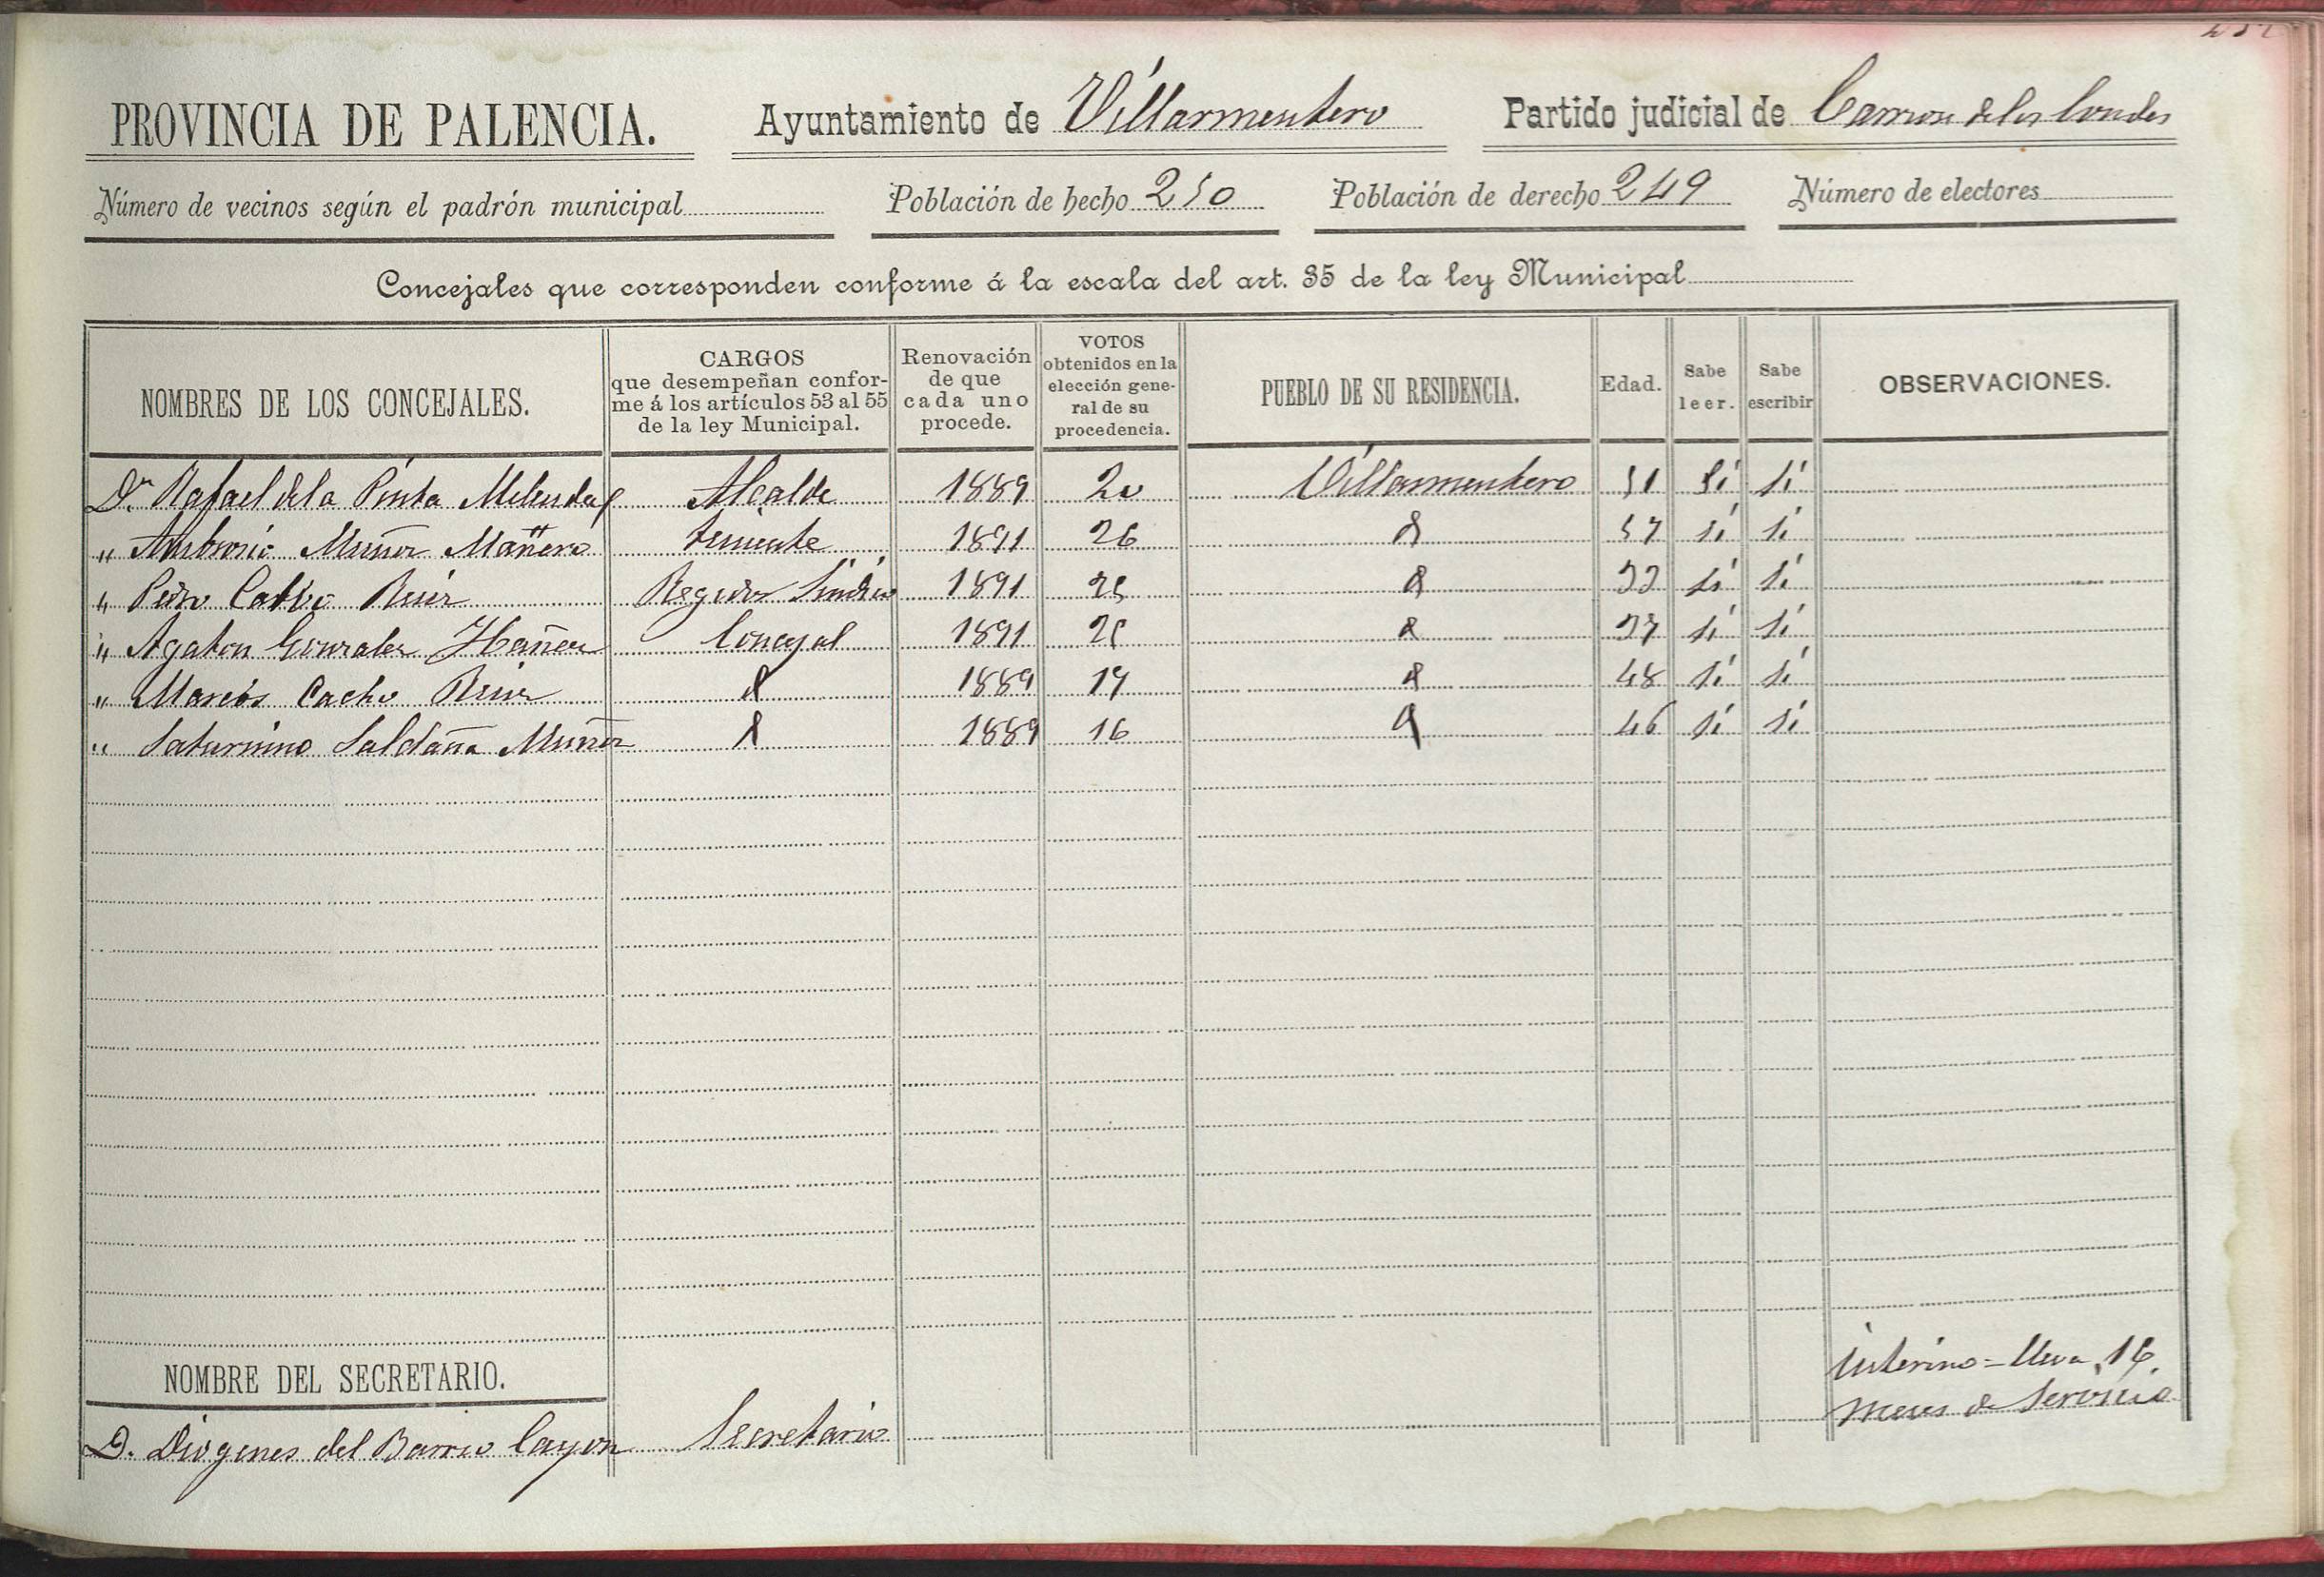 PROVINCIA DE PALENCIA. Ayuntamiento de Villarmentero Partido judicial de Carrion de los Condes
Número de vecinos según el padrón municipal Población de hecho 250 Población de derecho 249 Número de electores
Concejales que corresponden conforme á la escala del art. 35 de la ley Municipal
NOMBRES DE LOS CONCEJALES. CARGOS que desempeñan conforme á los artículos 53 al 55 de la ley Municipal. Renovación de que cada uno procede. VOTOS obtenidos en la elección general de su procedencia. PUEBLO DE SU RESIDENCIA. Edad. Sabe leer. Sabe escribir OBSERVACIONES.
Dn. Rafael de la Pinta Melendez Alcalde 1889 20 Villarmentero 51 Sí sí
" Ambrosio Muñoz Mañero teniente 1891 26 57 sí sí
" Pedro Calvo Ruiz Regidor Síndico 1891 25 33 sí sí
" Agaton Gonzalez Ibañez Concejal 1891 25 37 sí sí
" Marcos Cacho Ruiz 1889 19 48 sí sí
" Saturnino Saldaña Muñoz 1889 16 46 sí sí
NOMBRE DEL SECRETARIO.
D. Diogenes del Barrio Cayon Secretario interino = lleva 16 meses de Servicio